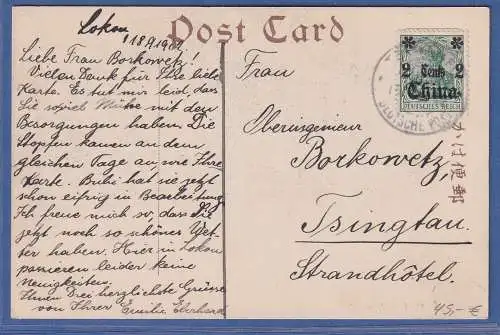 Post Card
Lokou
18/9 190
Liebe Frau Borkowetz!
Vielen Dank für Ihre liebe
Karte. Es tut mir leid, das
Sie soviel Mühe mit den
Besorgungen haben. Die
Stopfen kamen an dem
gleichen Tage an, wie Ihre
Karte. Buhi hat sie jetzt
schon eifrig in Bearbeitung
Ich freue mich so, dass Sie
jetzt noch so schönes Wet-
ter haben. Hier in Lokou
passieren leider keine
Neuigkeiten.
Ihnen Drei herzlichste Grüsse
von Ihrer Emilie Eberhard
Frau
Oberingenieur
Borkowetz,
Tsingtau.
Strandhôtel.
2 Cents 2
China
DEUTSCHES REICH
DEUTSCHE POST
きがは便郵
45,- €